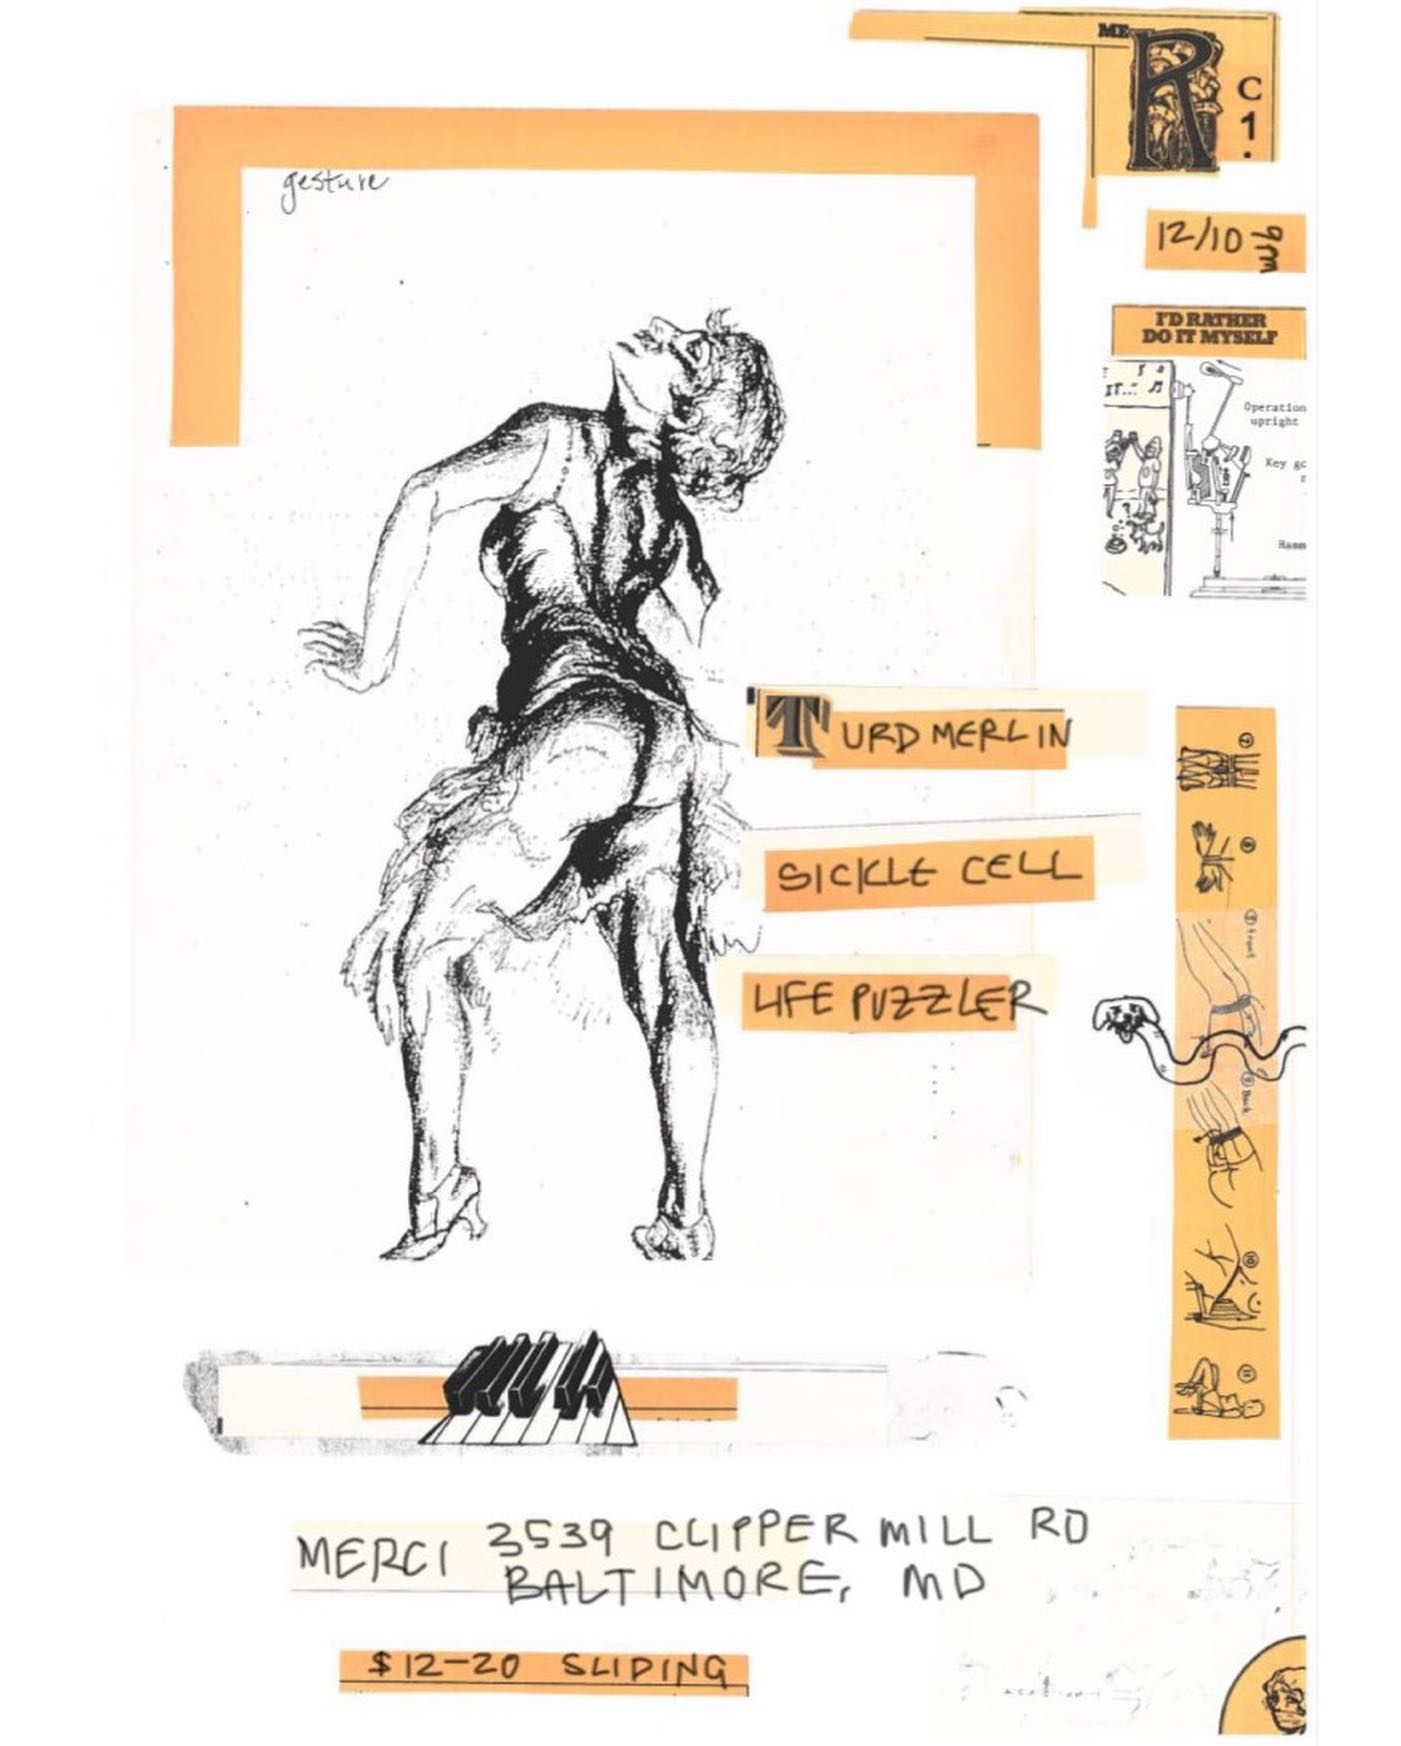 ME R C 1.
gesture
12/10 9PM
I'D RATHER
DO IT MYSELF
IT...
Operation
upright
Key
Hamm
TURD MERLIN
SICKLE CELL
LIFE PUZZLER
7
8
9 Front
9 Back
10
11
MERCI 3539 CLIPPER MILL RD
BALTIMORE, MD
$12-20 SLIDING